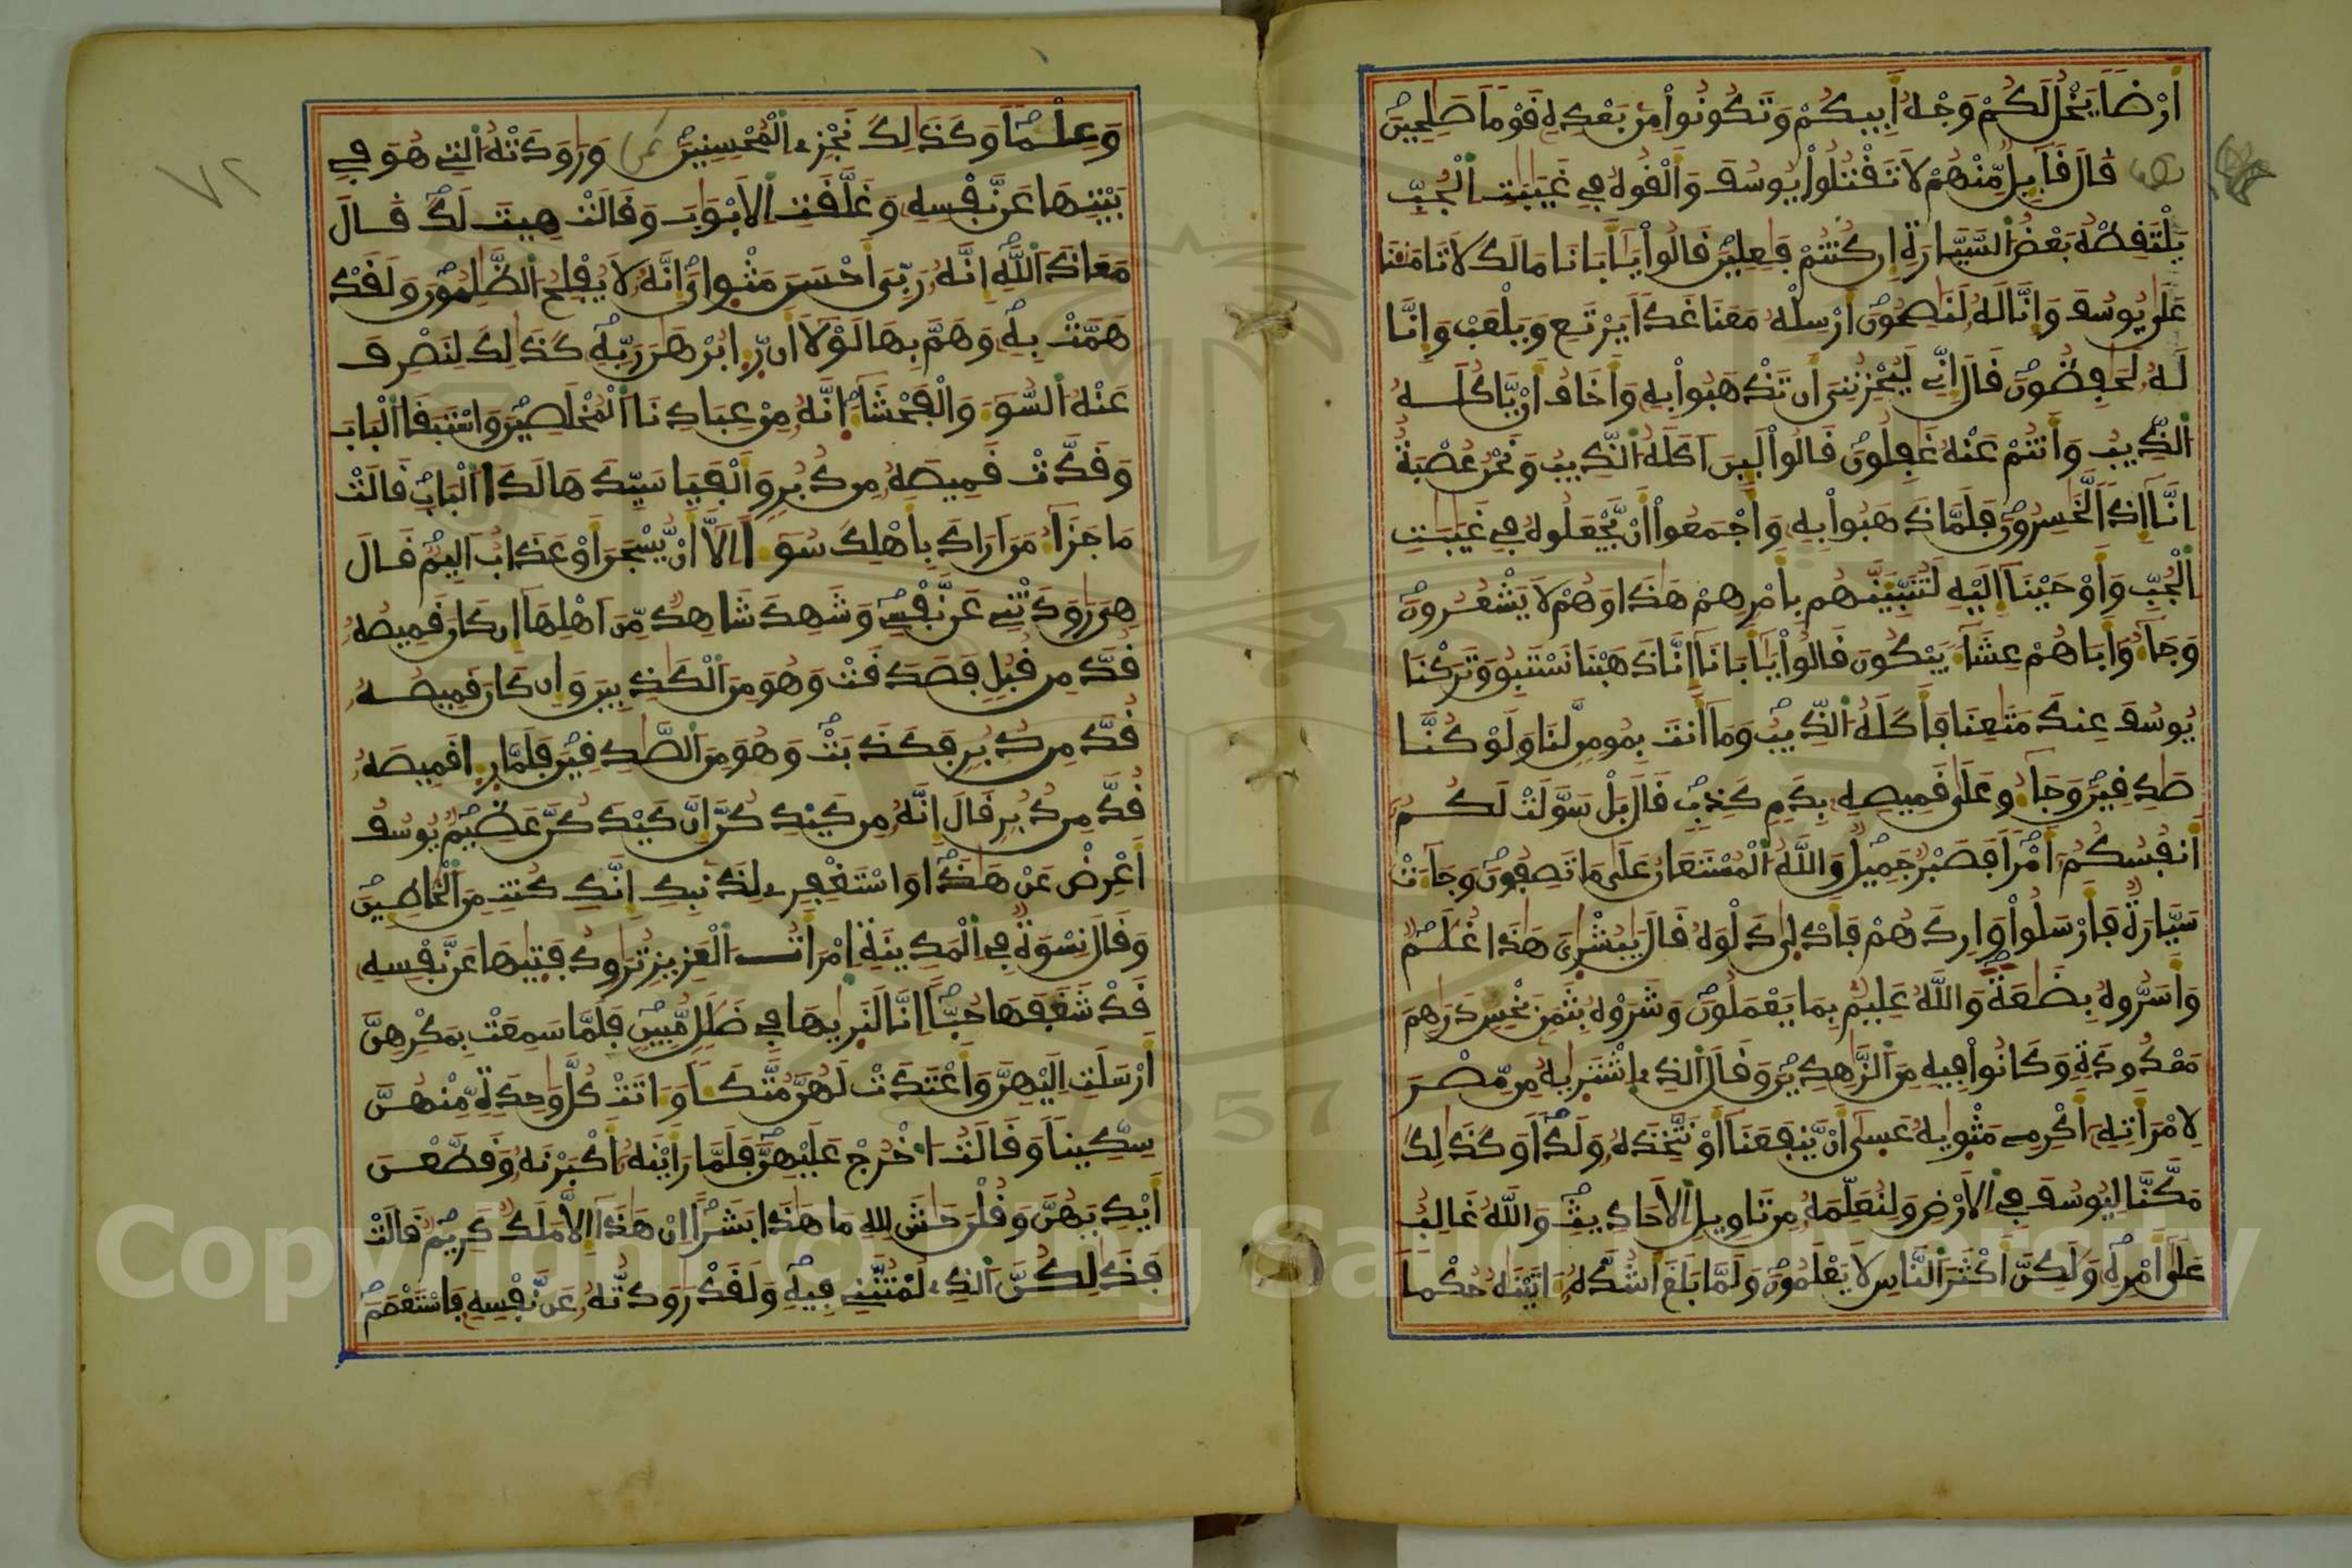 أرضا يخل لكم وجه أبيكم وتكونوا من بعده قوما صلحين
قال قايل منهم لا تقتلوا يوسف وألقوه في غيبت الجب
يلتقطه بعض السيارة إن كنتم فعلين قالوا يأبانا مالك لا تامنا
على يوسف وإنا له لنصحون أرسله معنا غدا يرتع ويلعب وإنا
له لحفظون قال إني ليحزنني أن تذهبوا به وأخاف أن ياكله
الذيب وأنتم عنه غفلون قالوا لين اكله الذيب ونحن عصبة
إنا إذا لخسرون فلما ذهبوا به وأجمعوا أن يجعلوه في غيبت
الجب وأوحينا إليه لتنبينهم بأمرهم هذا وهم لا يشعرون
وجاءو أباهم عشاء يبكون قالوا يأبانا إنا ذهبنا نستبق وتركنا
يوسف عند متعنا فأكله الذيب وما أنت بمومن لنا ولو كنا
صدقين وجاءو على قميصه بدم كذب قال بل سولت لكم
أنفسكم أمرا فصبر جميل والله المستعان على ما تصفون وجاءت
سيارة فأرسلوا واردهم فادلى دلوه قال يبشرى هذا غلم
وأسروه بضعة والله عليم بما يعملون وشروه بثمن بخس درهم
معدودة وكانوا فيه من الزهدين وقال الذي اشتريه من مصر
لامرأته أكرمي مثويه عسى أن ينفعنا أو نتخذه ولدا وكذلك
مكنا ليوسف في الأرض ولنعلمه من تاويل الأحاديث والله غالب
على أمره ولكن أكثر الناس لا يعلمون ولما بلغ أشده ءاتينه حكما
٧٢
وعلما وكذلك نجزي المحسنين ثمن وراودته التي هو في
بيتها عن نفسه وغلقت الأبواب وقالت هيت لك قال
معاذ الله إنه ربي أحسن مثواي إنه لا يفلح الظلمون ولقد
همت به وهم بها لولا أن رءا برهن ربه كذلك لنصرف
عنه السوء والفحشاء إنه من عبادنا المخلصين واستبقا الباب
وقدت قميصه من دبر وألفيا سيدها لدا الباب قالت
ما جزاء من أراد بأهلك سوءا إلا أن يسجن أو عذاب أليم قال
هي رودتني عن نفسي وشهد شاهد من أهلها إن كان قميصه
قد من قبل فصدقت وهو من الكذبين وإن كان قميصه
قد من دبر فكذبت وهو من الصدقين فلما رءا قميصه
قد من دبر قال إنه من كيدكن إن كيدكن عظيم يوسف
أعرض عن هذا واستغفري لذنبك إنك كنت من الخاطين
وقال نسوة في المدينة امرأت العزيز ترود فتيها عن نفسه
قد شغفها حبا إنا لنريها في ضلل مبين فلما سمعت بمكرهن
أرسلت إليهن وأعتدت لهن متكا وءاتت كل وحدة منهن
سكينا وقالت اخرج عليهن فلما رأينه أكبرنه وقطعن
أيديهن وقلن حش لله ما هذا بشرا إن هذا إلا ملك كريم قالت
فذلكن الذي لمتنني فيه ولقد رودته عن نفسه فاستعصم
Copyright © King Saud University
1957